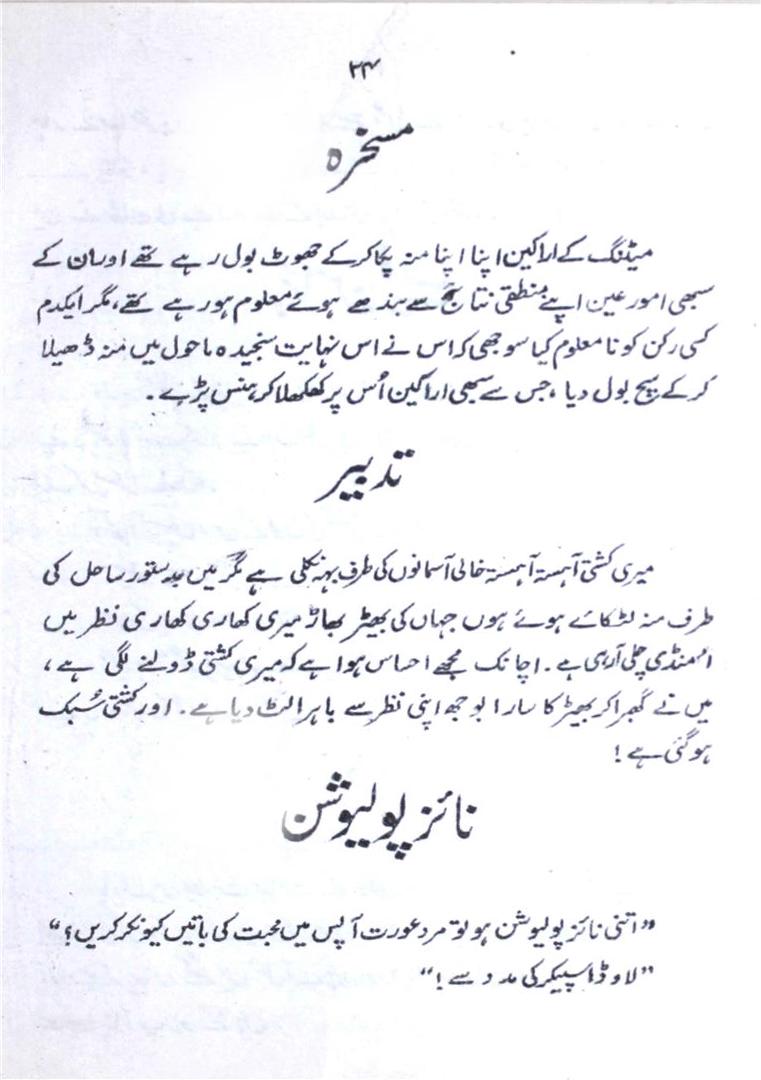 ۲۴
مسخرہ
میٹنگ کے اراکین اپنا اپنا منہ پکا کر کے جھوٹ بول رہے تھے اور ان کے
سبھی امور عین اپنے منطقی نتائج سے بندھے ہوئے معلوم ہو رہے تھے، مگر ایکدم
کسی رکن کو نا معلوم کیا سوجھی کہ اس نے اس نہایت سنجیدہ ماحول میں منہ ڈھیلا
کر کے سچ بول دیا، جس سے سبھی اراکین اُس پر کھلکھلا کر ہنس پڑے۔
تدبیر
میری کشتی آہستہ آہستہ خالی آسمانوں کی طرف بہہ نکلی ہے مگر میں بدستور ساحل کی
طرف منہ لٹکائے ہوئے ہوں جہاں کی بھیڑ بھاڑ میری کھاری کھاری نظر میں
امنڈی چلی آ رہی ہے۔ اچانک مجھے احساس ہوا ہے کہ میری کشتی ڈولنے لگی ہے،
میں نے گھبرا کر بھیڑ کا سارا بوجھ اپنی نظر سے باہر الٹ دیا ہے۔ اور کشتی سُبک
ہو گئی ہے!
نائز پولیوشن
”اتنی نائز پولیوشن ہو تو مرد عورت آپس میں محبت کی باتیں کیونکر کریں؟“
”لاوڈ اسپیکر کی مدد سے!“